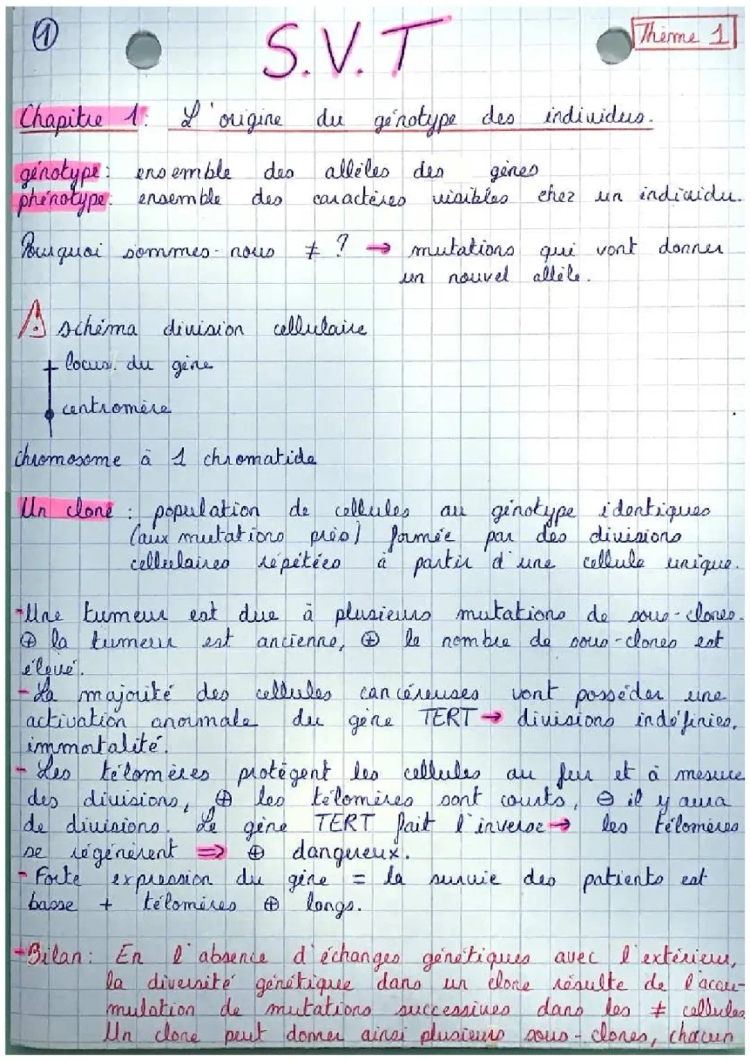 ①
S.V.T
Thème 1
Chapitre 1: L'origine du génotype des individus.
génotype: ensemble des allèles des gènes
phénotype: ensemble des caractères visibles chez un individu.
Pourquoi sommes-nous ≠ ? → mutations qui vont donner
un nouvel allèle.
⚠ schéma division cellulaire
locus du gène
centromère
chromosome à 1 chromatide
Un clone : population de cellules au génotype identiques
(aux mutations près) formée par des divisions
cellulaires répétées à partir d'une cellule unique.
-Une tumeur est due à plusieurs mutations de sous-clones.
⊕ la tumeur est ancienne, ⊕ le nombre de sous-clones est
élevé.
-La majorité des cellules cancéreuses vont posséder une
activation anormale du gène TERT → divisions indéfinies,
immortalité.
- Les télomères protègent les cellules au fur et à mesure
des divisions, ⊕ les télomères sont courts, ⊖ il y aura
de divisions. Le gène TERT fait l'inverse → les télomères
se régénèrent ⇒ ⊕ dangereux.
- Forte expression du gène = la survie des patients est
basse + télomères ⊕ longs.
-Bilan: En l'absence d'échanges génétiques avec l'extérieur,
la diversité génétique dans un clone résulte de l'accu-
mulation de mutations successives dans les ≠ cellules
Un clone peut donner ainsi plusieurs sous-clones, chacun